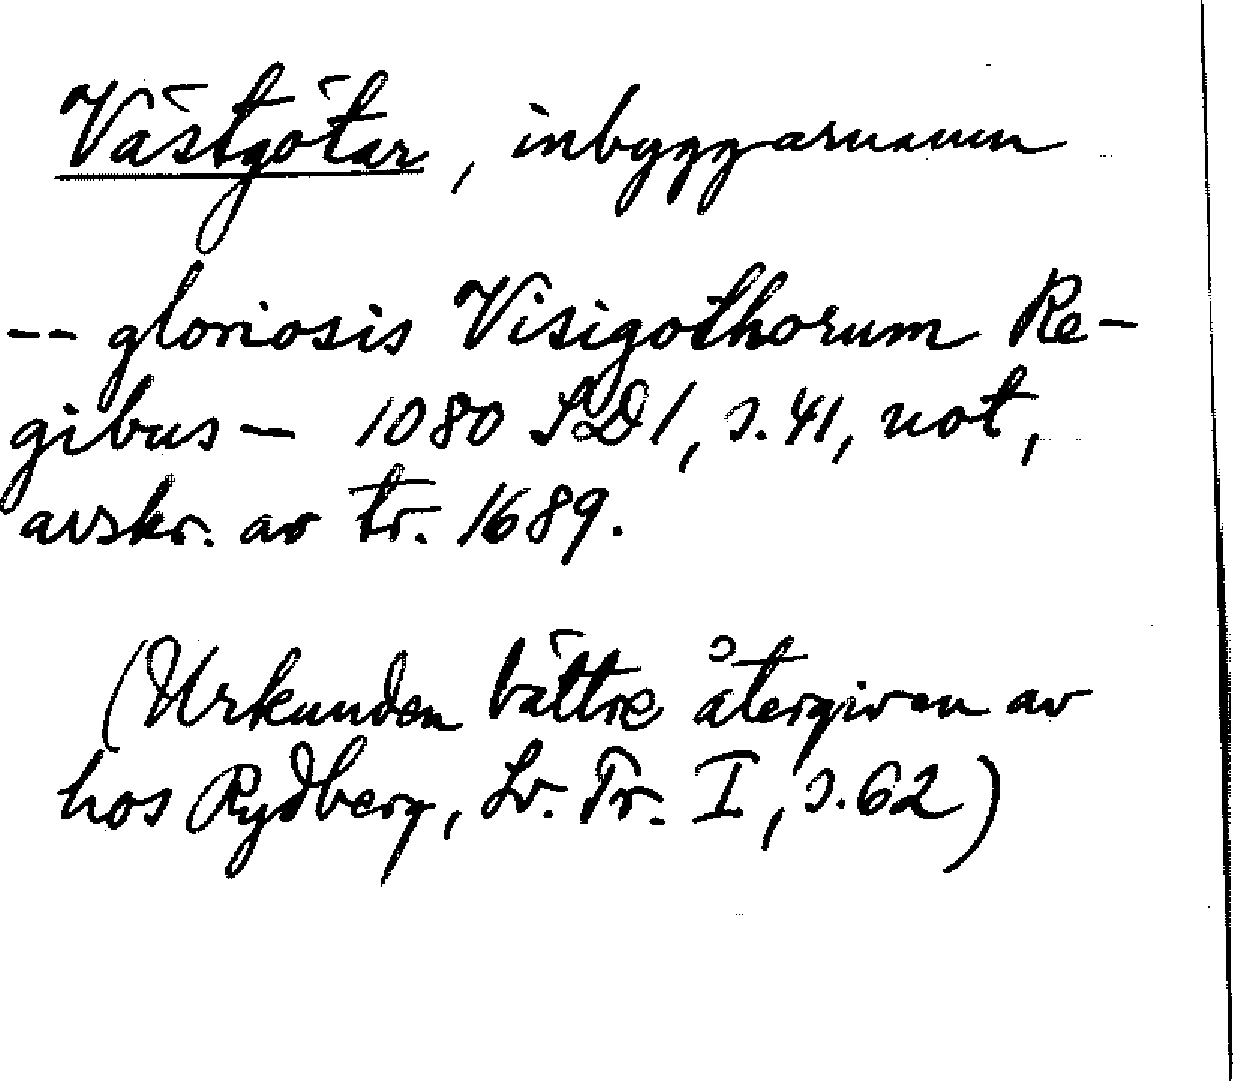 Västgötar, inbyggarnamn
-- gloriosis Visigothorum Re-
gibus - 1080 SD 1, s. 41, not,
avskr. av tr. 1689.
(Urkunden bättre återgiven av
hos Rydberg, Sv. Tr. I, s. 62)